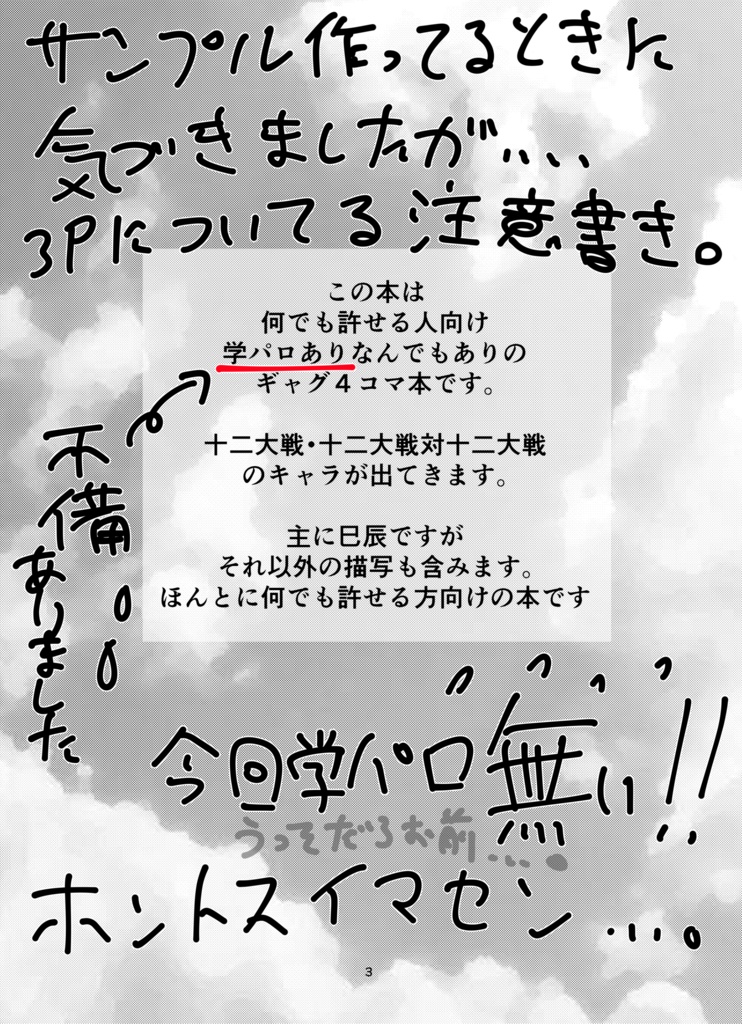 サンプル作ってるときに
気づきましたが...
3Pについてる注意書き。
この本は
何でも許せる人向け
学パロありなんでもありの
ギャグ4コマ本です。
十二大戦・十二大戦対十二大戦
のキャラが出てきます。
主に巳辰ですが
それ以外の描写も含みます。
ほんとに何でも許せる方向けの本です
不備
ありました
今回学パロ無い!!
うっそだろお前....
ホントスイマセン...。
3